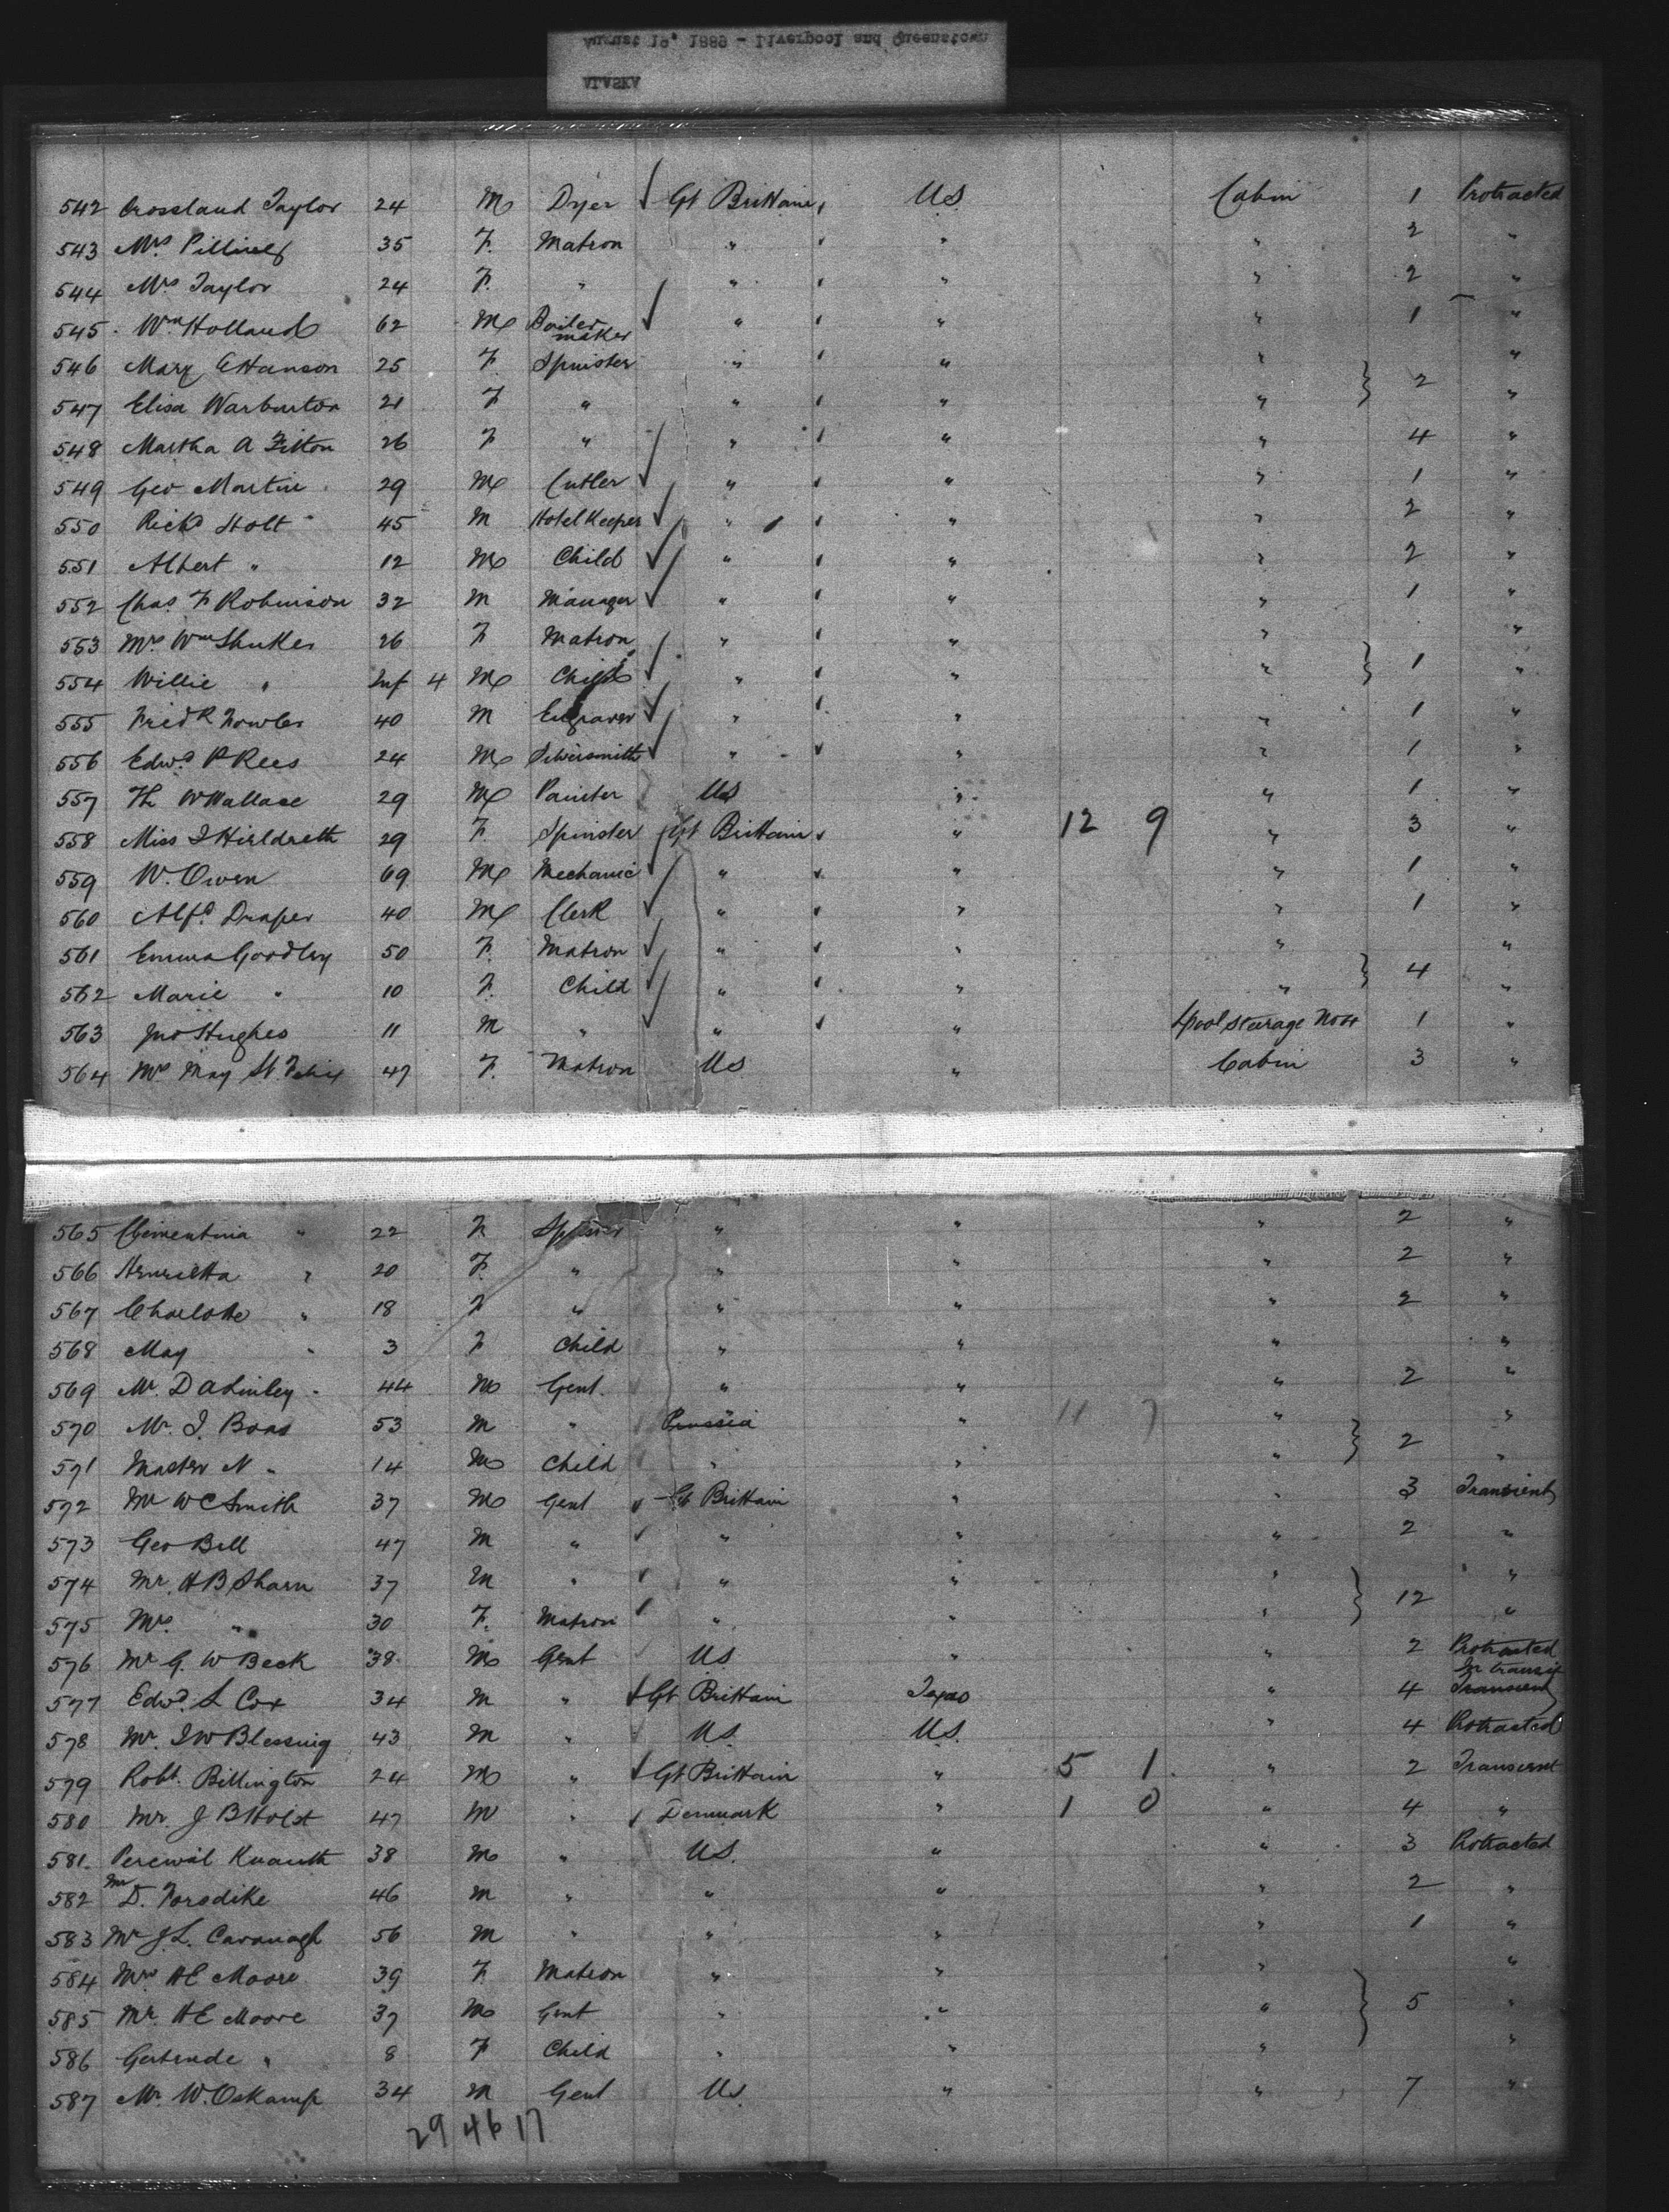 August 19, 1889 - Liverpool and Queenstown
ALASKA
542 Crossland Taylor 24 M Dyer Gt Brittain US Cabin 1 Protracted
543 Mrs 35 F. Matron " " " 2 "
544 Mrs Taylor 24 F. " " " " 2 "
545 Wm Holland 62 M Boiler maker " " " 1 "
546 Mary E Hanson 25 F. Spinster " " " "
547 Elisa Warburton 21 F " " " " 2 "
548 Martha A Fitton 26 F " " " " 4 "
549 Geo Martin 29 M Cutler " " " 1 "
550 Richd Holt 45 M Hotel Keeper " " " 2 "
551 Albert " 12 M Child " " " 2 "
552 Chas F Robinson 32 M Manager " " " 1 "
553 Mrs Wm Shukes 26 F Matron " " " "
554 Willie " Inf 4 M Child " " " 1 "
555 Fredk Fowler 40 M Engraver " " " 1 "
556 Edwd P Rees 24 M Silversmith " " " 1 "
557 Th W Wallace 29 M Painter US " " 1 "
558 Miss I Hirldreth 29 F. Spinster Gt Brittain " 12 9 " 3 "
559 W. Owen 69 M Mechanic " " " 1 "
560 Alfd Draper 40 M Clerk " " " 1 "
561 Emma Goodley 50 F. Matron " " " "
562 Marie " 10 F. Child " " " 4 "
563 Jno Hughes 11 M " " " Lpool Steerage No 4 1 "
564 Mrs May St. Felix 47 F. Matron US " Cabin 3 "
565 Clementina " 22 F Spinster " " " 2 "
566 Henrietta " 20 F. " " " " 2 "
567 Charlotte " 18 F " " " " 2 "
568 May " 3 F Child " " " "
569 Mr. D A Linley 44 M Gent. " " " 2 "
570 Mr. I. Boas 53 M " Prussia " 11 7 " "
571 Master N " 14 M Child " " " 2 "
572 Mr W C Smith 37 M Gent Gt Brittain " " 3 Transient
573 Geo Bell 47 M " " " " 2 "
574 Mr. H B Sharn 37 M " " " " "
575 Mrs. " 30 F. Matron " " " 12 "
576 Mr G. W Beck 38 M Gent US " " 2 Protracted
577 Edwd. L Cox 34 M " Gt Brittain " 4 In transit Transient
578 Mr. I W Blessing 43 M " U.S. U.S. " 4 Protracted
579 Robt. Billington 24 M " Gt Brittain " 5 1 " 2 Transient
580 Mr. J B Holst 47 M " Denmark " 1 0 " 4 "
581 Percival Knauth 38 M " US. " " 3 Protracted
582 Mr D. Forsdike 46 M " " " " 2 "
583 Mr J L. Cavanagh 56 M " " " " 1 "
584 Mrs H E Moore 39 F. Matron " " " "
585 Mr. H E Moore 37 M Gent " " " 5 "
586 Gertrude " 8 F Child " " " "
587 Mr. W. Oskamp 34 M Gent US " " 7 "
29 46 17